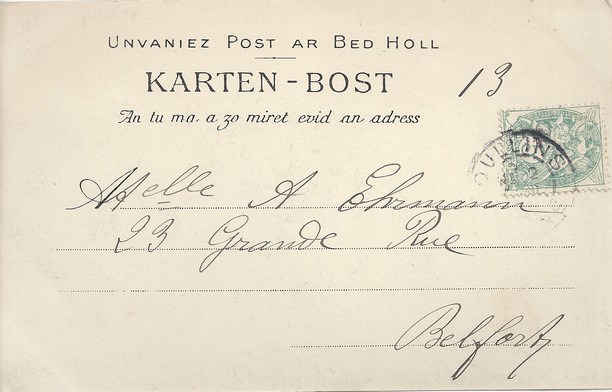 UNVANIEZ POST AR BED HOLL
KARTEN-BOST
13
An tu ma, a zo miret evid an adress
OULLINS
Melle A Ehrmann
23 Grande Rue
Belfort